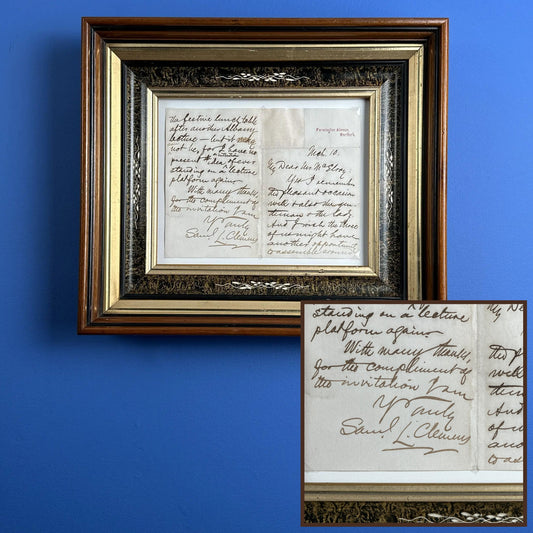 Farmington Avenue,
Hartford.
Mch 10.
My Dear
Yes I remember
the pleasant occasion
well & also the gen-
tleman & the lady.
And I wish the three
of us might have
another opportunity
to assemble around
the festive lunch table
after another Albany
lecture — but it may
not be, for I have no
present idea of ever
standing on a lecture
platform again.
With many thanks,
for the compliment of
the invitation I am
Yrs Truly
Saml. L. Clemens
standing on a lecture
platform again.
With many thanks,
for the compliment of
the invitation I am
Yrs Truly
Saml. L. Clemens